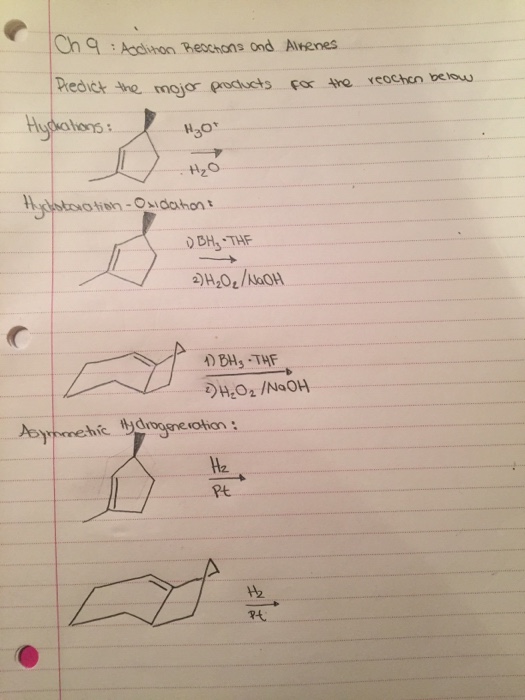 Ch 9 : Addition Reactions and Alkenes
Predict the major products for the reaction below
Hydrations:
H₃O⁺
H₂O
Hydroboration-Oxidation:
1) BH₃·THF
2) H₂O₂/NaOH
1) BH₃·THF
2) H₂O₂/NaOH
Asymmetric Hydrogeneration:
H₂
Pt
H₂
Pt